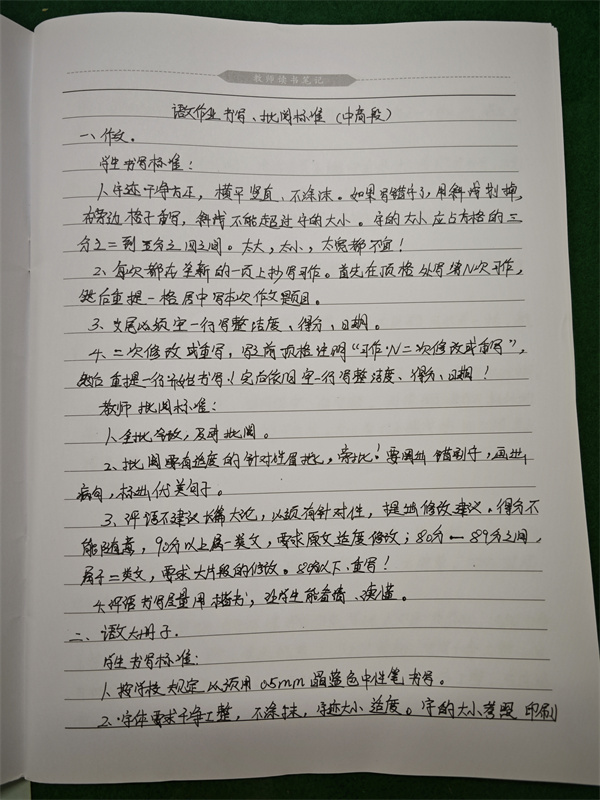 教师读书笔记
语文作业书写、批阅标准（中高段）
一、作文。
学生书写标准：
1、字迹干净方正，横平竖直、不涂抹。如果写错字了，用斜线划掉，
在旁边格子重写，斜线不能超过字的大小。字的大小应占方格的三
分之二到五分之四之间。太大，太小，太宽都不宜！
2、每次都在全新的一页上抄写习作。首先在顶格处写第N次习作，
然后重提一格居中写本次作文题目。
3、文尾必须空一行写整洁度、得分、日期。
4、二次修改或重写，写前顶格注明“习作N二次修改或重写”，
然后重提一行开始书写！完后依旧空一行写整洁度、得分、日期！
教师批阅标准：
1、全批全改，及时批阅。
2、批阅要有适度的针对性眉批，旁批！要圈出错别字，画出
病句，标出优美句子。
3、评语不建议长篇大论，必须有针对性，提出修改建议。得分不
能随意，90分以上属一类文，要求原文适度修改；80分—89分之间，
属于二类文，要求大片段的修改。80分以下，重写！
4、评语书写尽量用楷书，让学生能看清、读懂。
二、语文大册子.
学生书写标准：
1、按学校规定必须用0.5mm晶蓝色中性笔书写。
2、字体要求干净工整，不涂抹，字迹大小适度。字的大小参照印刷